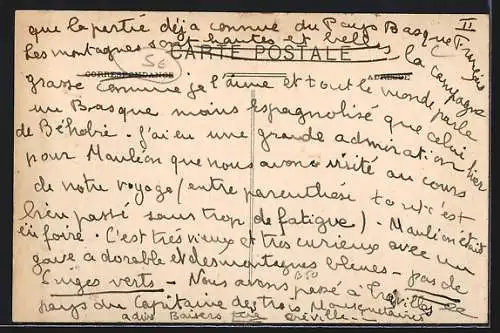 II
que la partie déjà connue du Pays Basque Français
Les montagnes sont hautes et belles, la campagne
CARTE POSTALE
5€
CORRESPONDANCE
ADRESSE
grasse comme je l'aime et tout le monde parle
un Basque moins espagnolisé que celui
de Béhobie. J'ai eu une grande admiration hier
pour Mauléon que nous avons visité au cours
de notre voyage (entre parenthèse tout s'est
bien passé sans trop de fatigue). Mauléon était
en foire. C'est très vieux et très curieux avec un
gave adorable et des montagnes bleues - pas de
Singes verts - Nous avons passé à Trévilles
B50
pays du Capitaine des trois Mousquetaires
Baisers